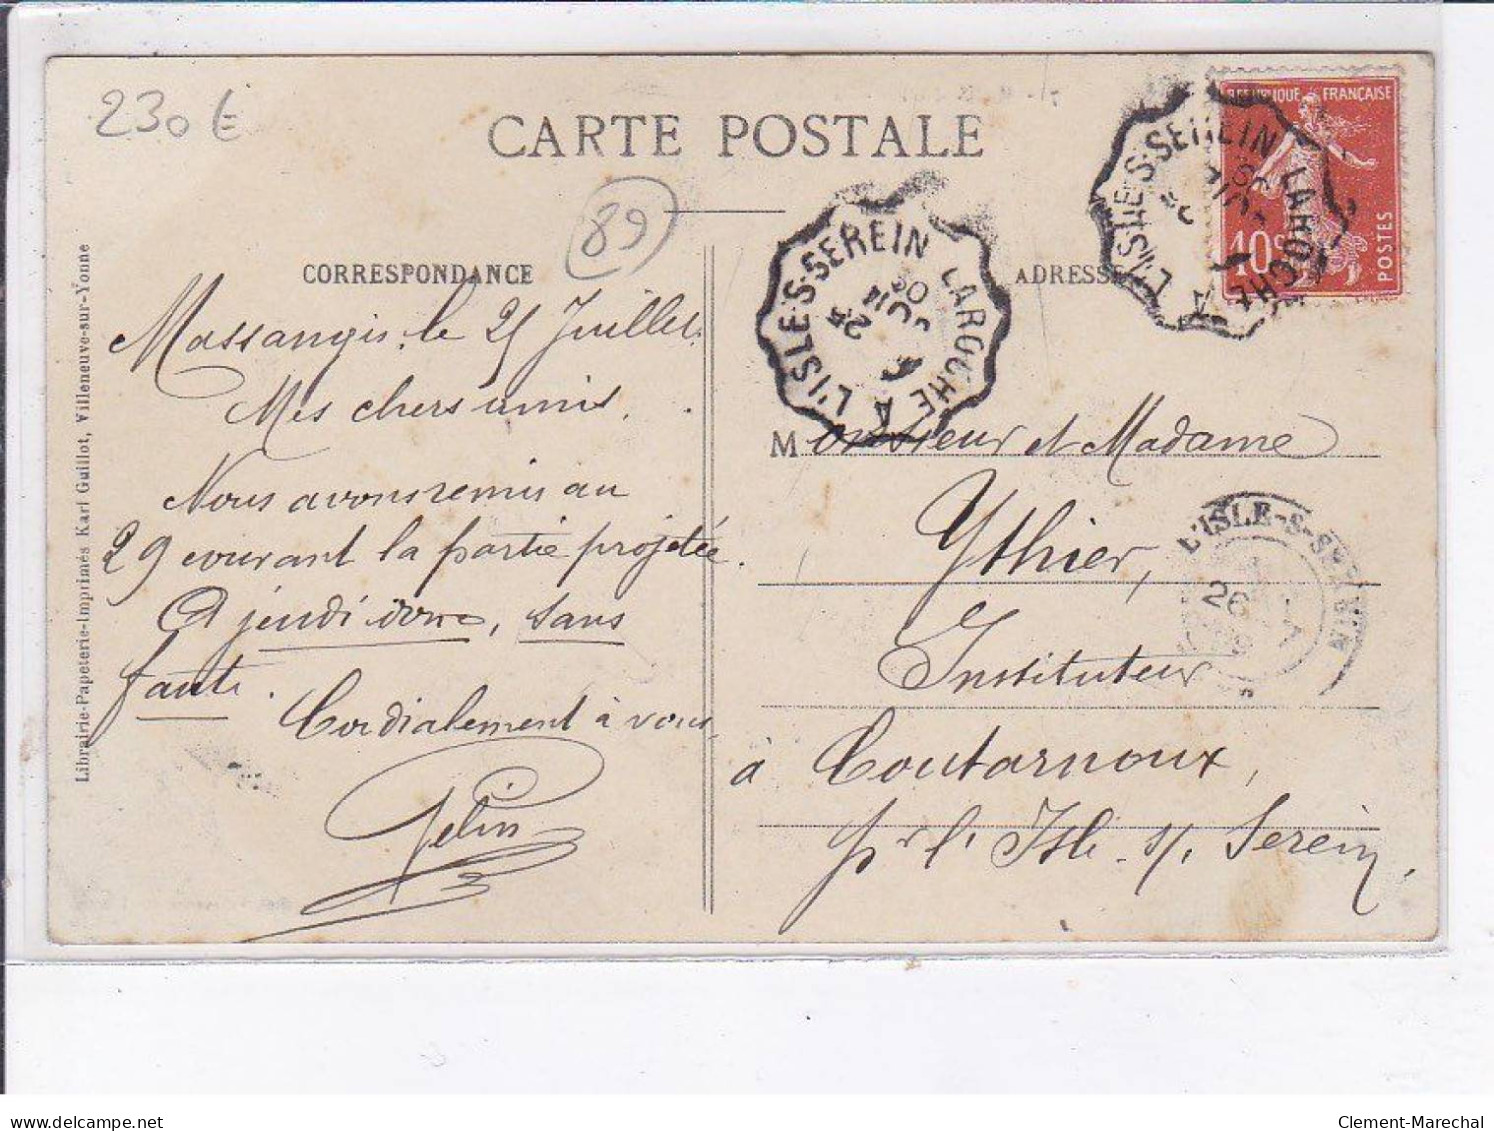 230 €
CARTE POSTALE
89
CORRESPONDANCE
ADRESSE
RÉPUBLIQUE FRANÇAISE
10c
POSTES
LAROCHE A L'ISLE-S-SEREIN
25
JUIL
09
LAROCHE A L'ISLE-S-SEREIN
Massangis. le 25 Juillet.
Mes chers amis.
Nous avons remis au
29 courant la partie projetée.
A jeudi donc, sans
faute.
Cordialement à vous
Monsieur et Madame
Ythier,
Instituteur
à Coutarnoux,
pr l'Isle s/ Serein,
L'ISLE-S-SEREIN
26
Librairie-Papeterie-Imprimés Karl Guillot, Villeneuve-sur-Yonne
delcampe.net
Clement-Marechal